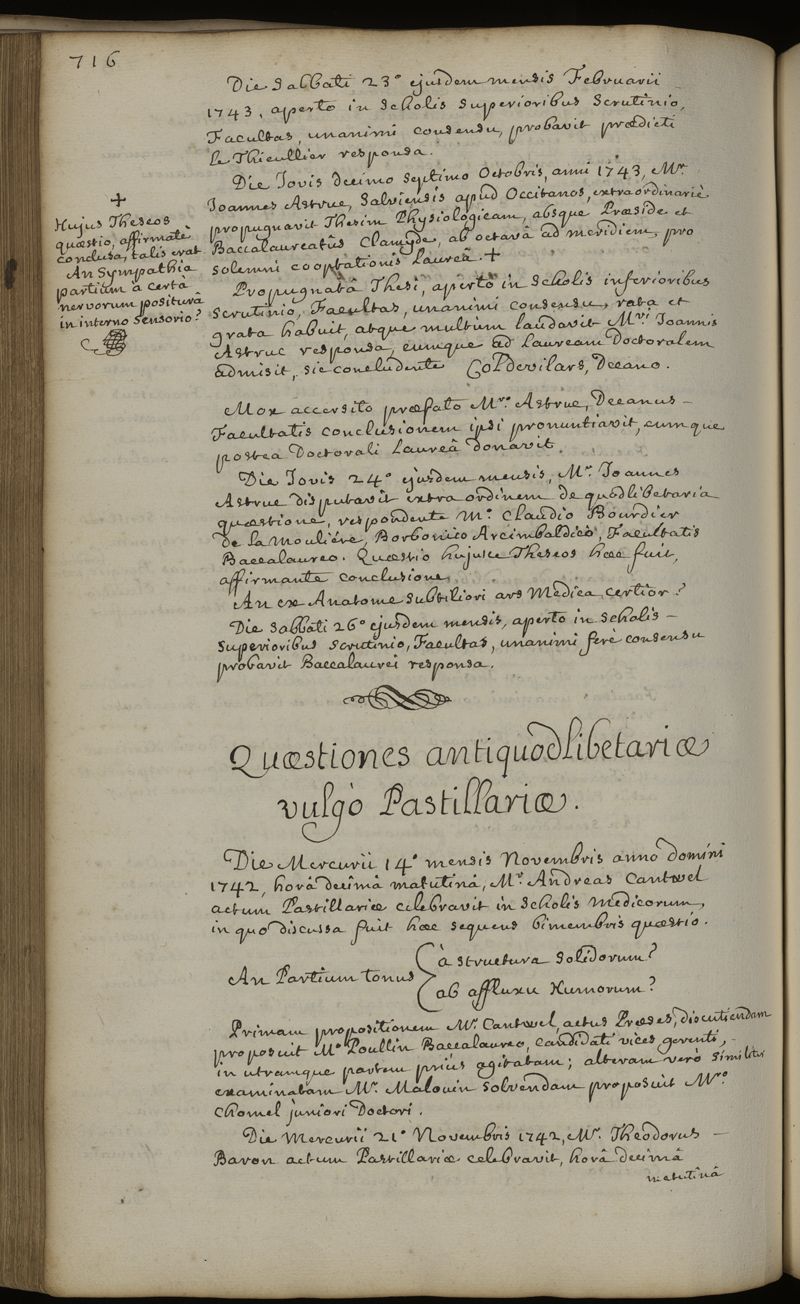 716
Die Sabbati 23° ejusdem mensis Februarii
1743, aperto in Scholis superioribus Scrutinio,
Facultas, unanimi consensu, probavit prædicti
le Thieullier responsa.
Die Jovis decimo septimo Octobris, anni 1743, Mr.
Joannes Astruc, Salviensis apud Occitanos, extraordinariè
propugnavit Thesim Physiologicam, absque Præside et
Baccalaureatûs Clamyde, ab octavâ ad meridiem, pro
solemni cooptationis Laureâ. +
+
Hujus Theseos
quæstio, affirmatè
conclusa, talis erat
An Sympathia
partium a certâ
nervorum positurâ
in interno Sensorio?
Propugnatâ Thesi, aperto in Scholis inferioribus
Scrutinio, Facultas, unanimi consensu, rata et
grata habuit, atque multùm laudavit Mri. Joannis
Astruc responsa, eumque ad Lauream Doctoralem
admisit, sic concludente Col Devilars, Decano.
Mox accersito præfato Mro. Astruc, Decanus –
Facultatis conclusionem ipsi pronuntiavit, eumque
postea Doctorali Laureâ donavit.
Die Jovis 24° ejusdem mensis, Mr. Joannes
Astruc disputavit extra ordinem de quodlibetaria
quæstione, respondente Mo. Claudio Bourdier
de la Mouliére, Borbonico Arcimbaldicò, Facultatis
Baccalaureo. Quæstio hujusce Theseos hæc fuit,
affirmante conclusione,
An ex Anatome subtiliori ars Medica certior?
Die Sabbati 26° ejusdem mensis, aperto in Scholis –
Superioribus Scrutinio, Facultas, unanimi ferè consensu
probavit Baccalaurei responsa.
Quæstiones antiquodlibetariæ
vulgò Pastillariæ.
Die Mercurii 14° mensis Novembris anno domini
1742, horâ decimâ matutinâ, Mr. Andreas Cantwel
actum Pastillariæ celebravit in Scholis Medicorum,
in quo discussa fuit hæc sequens bimembris quæstio.
An Partium tonus
à structura Solidorum?
ab affluxu Humorum?
Primam propositionem Mr. Cantwel, actus Præses, discutiendam
proposuit Mo. Poullin Baccalaureo, candidati vices gerenti, –
in utramque partem priùs agitatam; alteram verò similiter
examinatam Mr. Malouin solvendam proposuit Mro.
Chomel juniori Doctori.
Die Mercurii 21° Novembris 1742, Mr. Theodorus –
Baron actum Pastillariæ celebravit, horâ decimâ
matutinâ